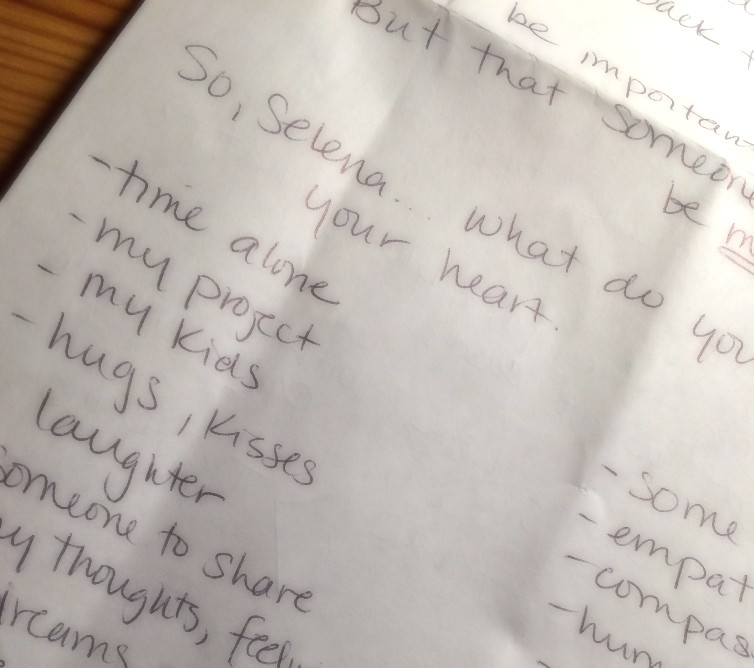 be important
But that someone
be
So, Selena... what do you
your heart.
- time alone
- my project
- my kids
- hugs, kisses
laughter
someone to share
thoughts,
dreams
- some
- empat
- compas
- hum